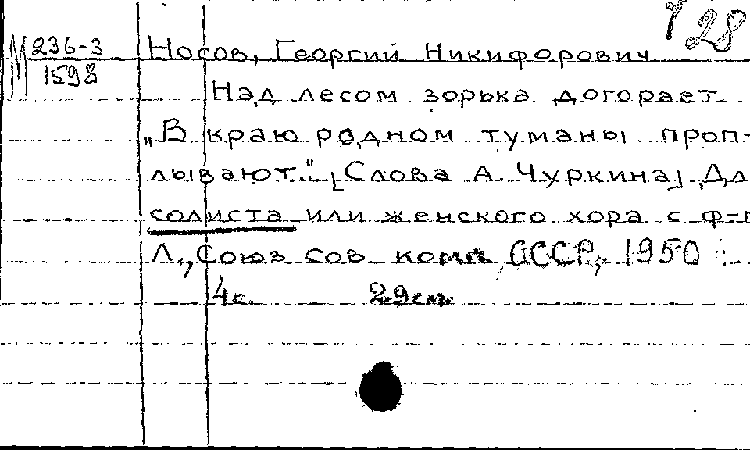 Г 28
М 236-3
1598
Носов, Георгий Никифорович
Над лесом зорька догорает
„В краю родном туманы проп-
лывают." [Слова А. Чуркина] Дл
солиста или женского хора с ф-п
Л., Союз сов. комп. СССР, 1950.
4 с. 29 см.